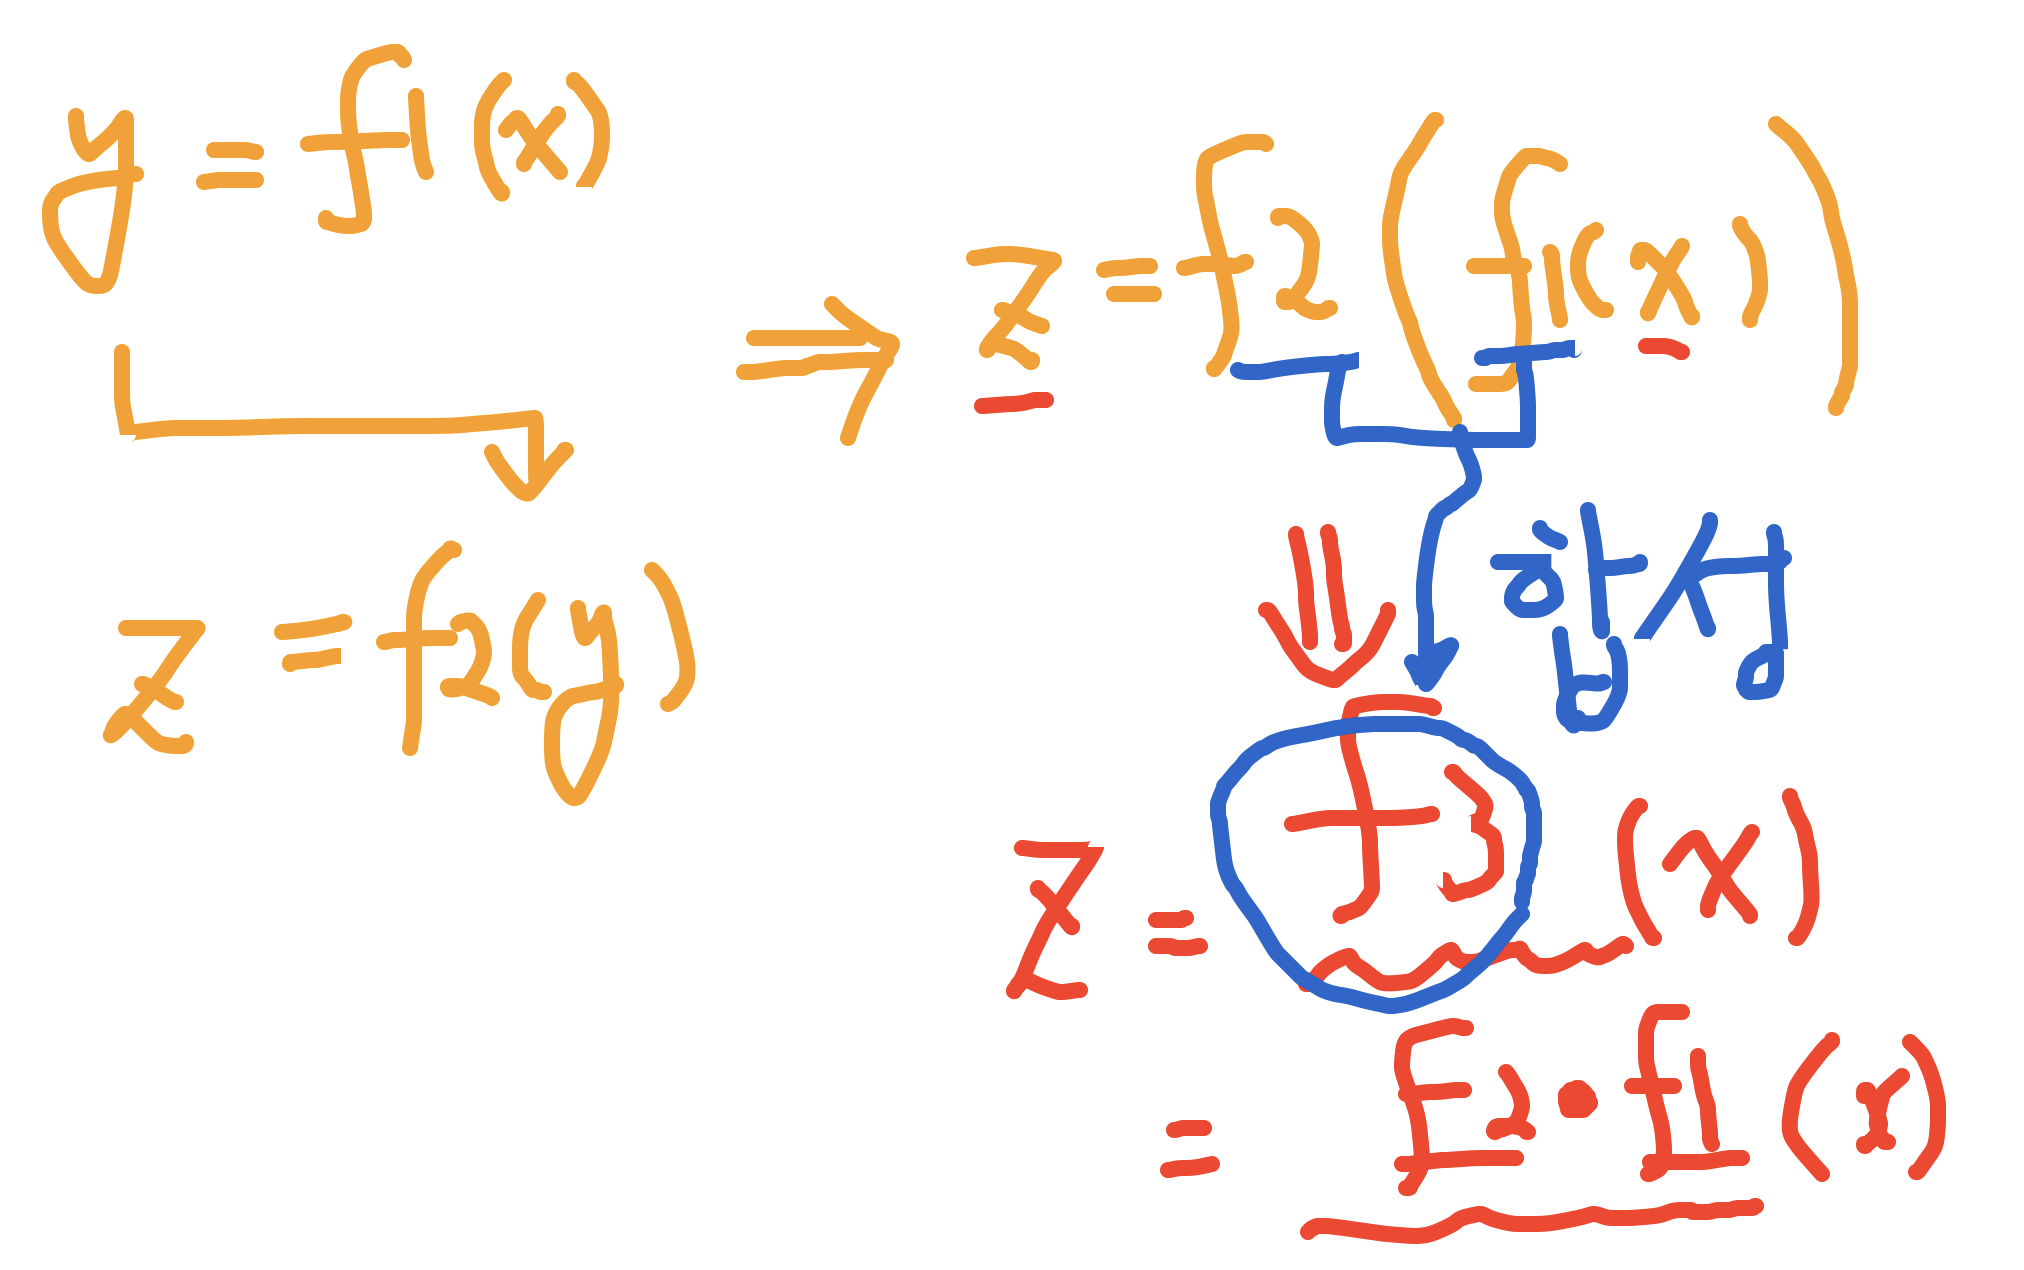 y = f1(x)
z = f2(y)
⇒ z = f2(f1(x))
합성
z = f3(x)
= f2•f1(x)